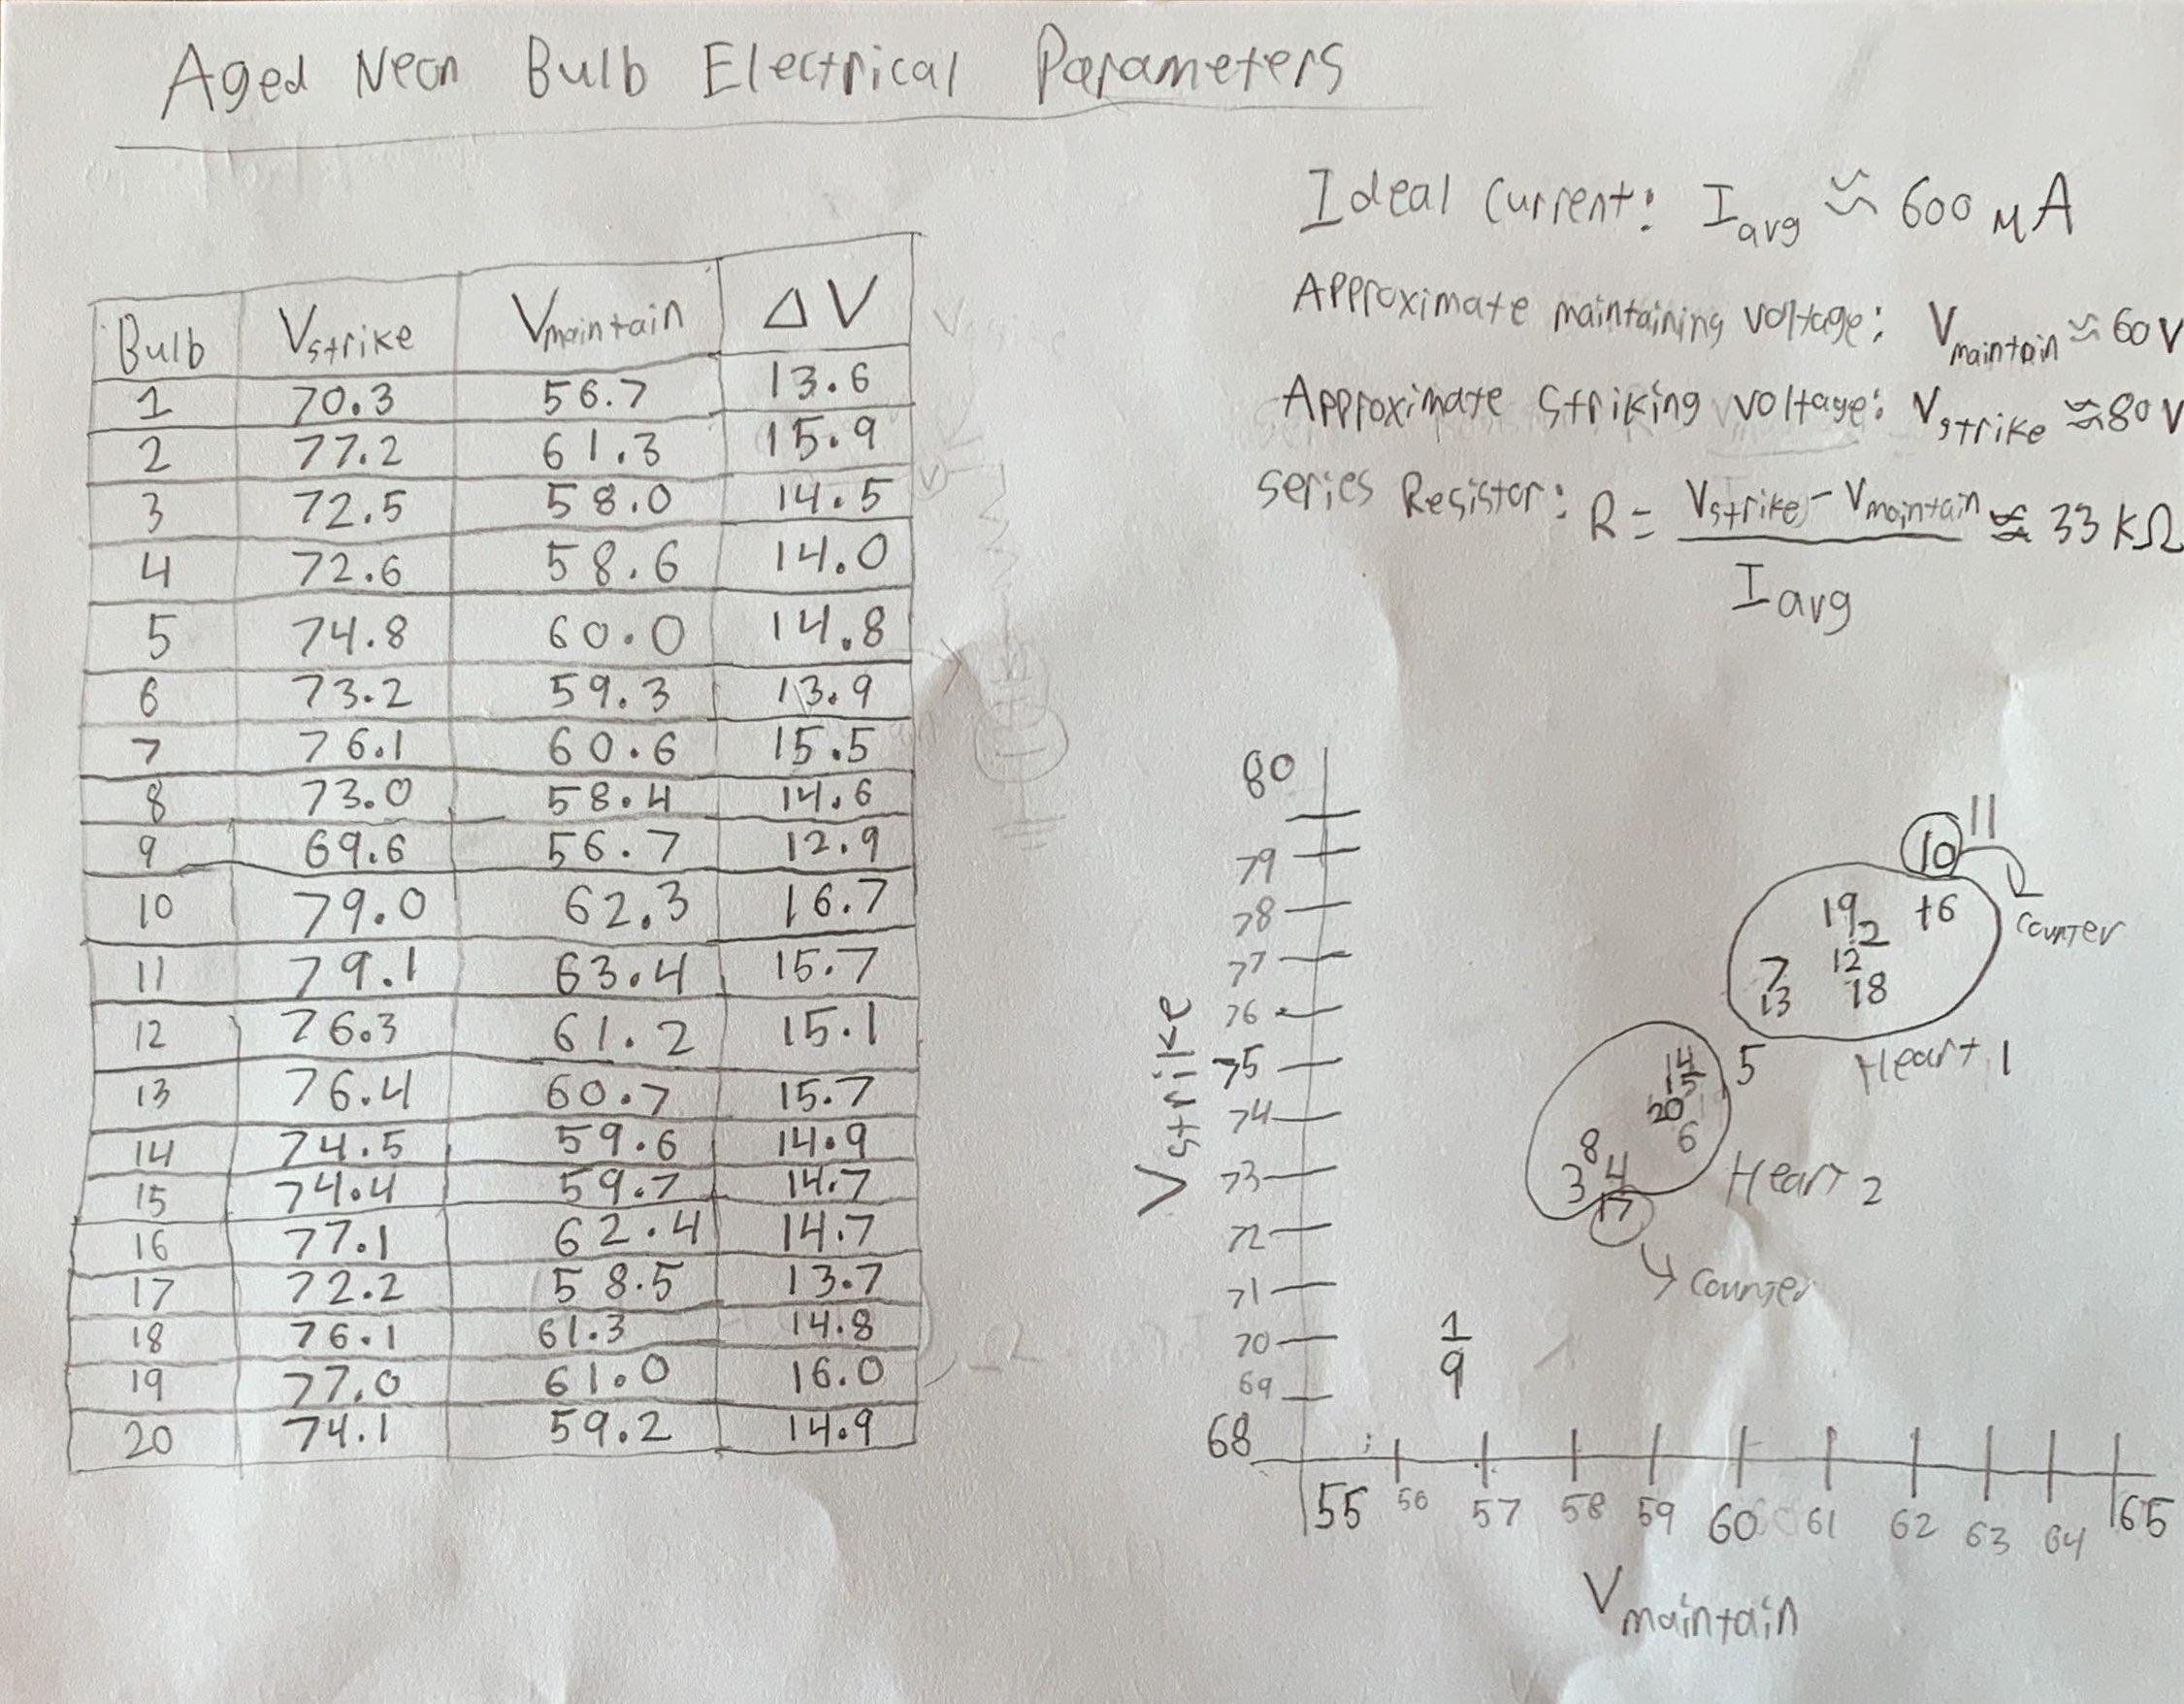 Aged Neon Bulb Electrical Parameters
Ideal Current: I avg ≈ 600 μA
Approximate maintaining voltage: V maintain ≈ 60 V
Approximate striking voltage: V strike ≈ 80 V
series Resistor: R = V strike - V maintain / I avg ≈ 33 kΩ
Bulb V strike V maintain ΔV
1 70.3 56.7 13.6
2 77.2 61.3 15.9
3 72.5 58.0 14.5
4 72.6 58.6 14.0
5 74.8 60.0 14.8
6 73.2 59.3 13.9
7 76.1 60.6 15.5
8 73.0 58.4 14.6
9 69.6 56.7 12.9
10 79.0 62.3 16.7
11 79.1 63.4 15.7
12 76.3 61.2 15.1
13 76.4 60.7 15.7
14 74.5 59.6 14.9
15 74.4 59.7 14.7
16 77.1 62.4 14.7
17 72.2 58.5 13.7
18 76.1 61.3 14.8
19 77.0 61.0 16.0
20 74.1 59.2 14.9
80
79
78
77
76
75
74
73
72
71
70
69
68
V strike
10 11
counter
19 16
2
7 12
13 18
Heart 1
14 5
15
20
8 6
3 4
17
Heart 2
counter
1
9
55 56 57 58 59 60 61 62 63 64 65
V maintain